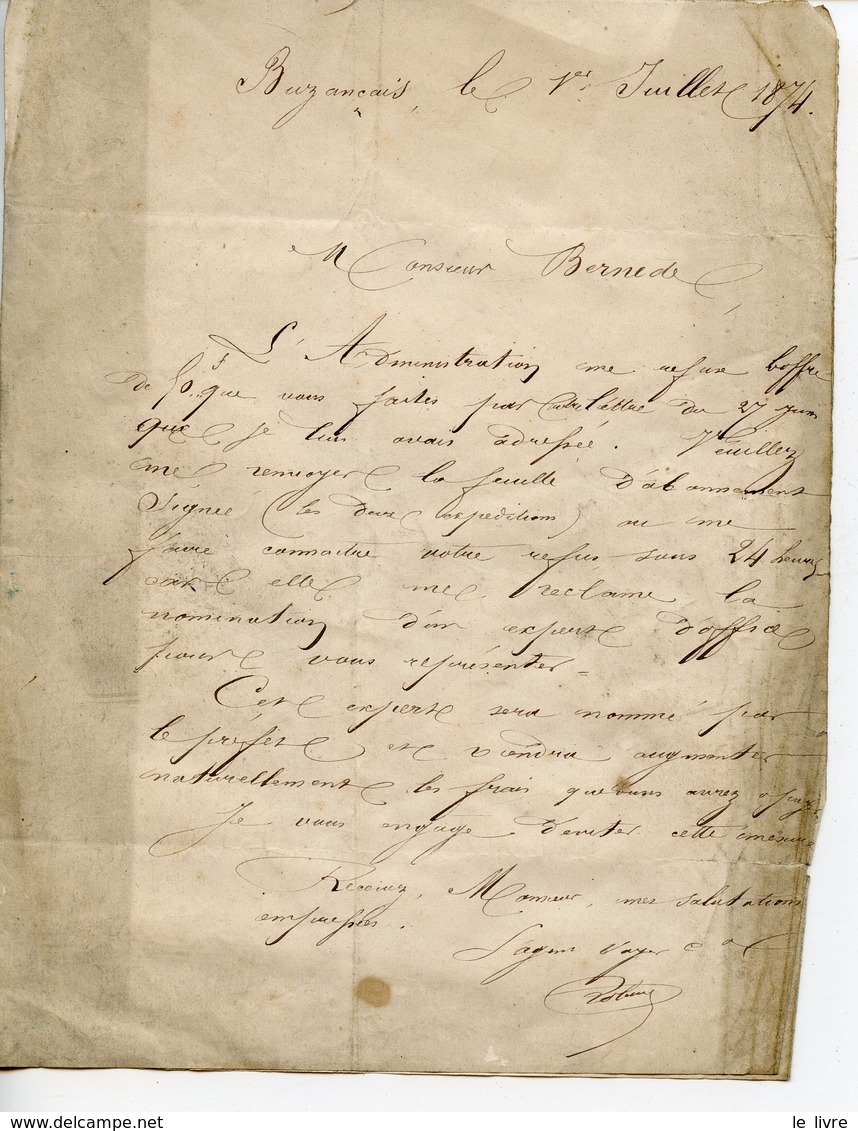 Buzançais, le 1er Juillet 1874.
Monsieur Bernede,
L'Administration me refuse l'offre
de 50f. que vous faites par votre lettre du 27 juin
que je lui avais adressée. Veuillez
me renvoyer la feuille d'abonnement
signée (les deux expéditions) ou me
faire connaitre votre refus sous 24 heures
car elle me réclame la
nomination d'un expert d'office
pour vous représenter =
Cet expert sera nommé par
le préfet et viendra augmenter
naturellement les frais que vous aurez à payer
Je vous engage d'éviter cette mesure
Recevez, Monsieur, mes salutations
empressées.
L'agent voyer
le livre